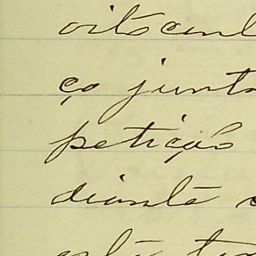 oitocent
ço junto
petição
diante